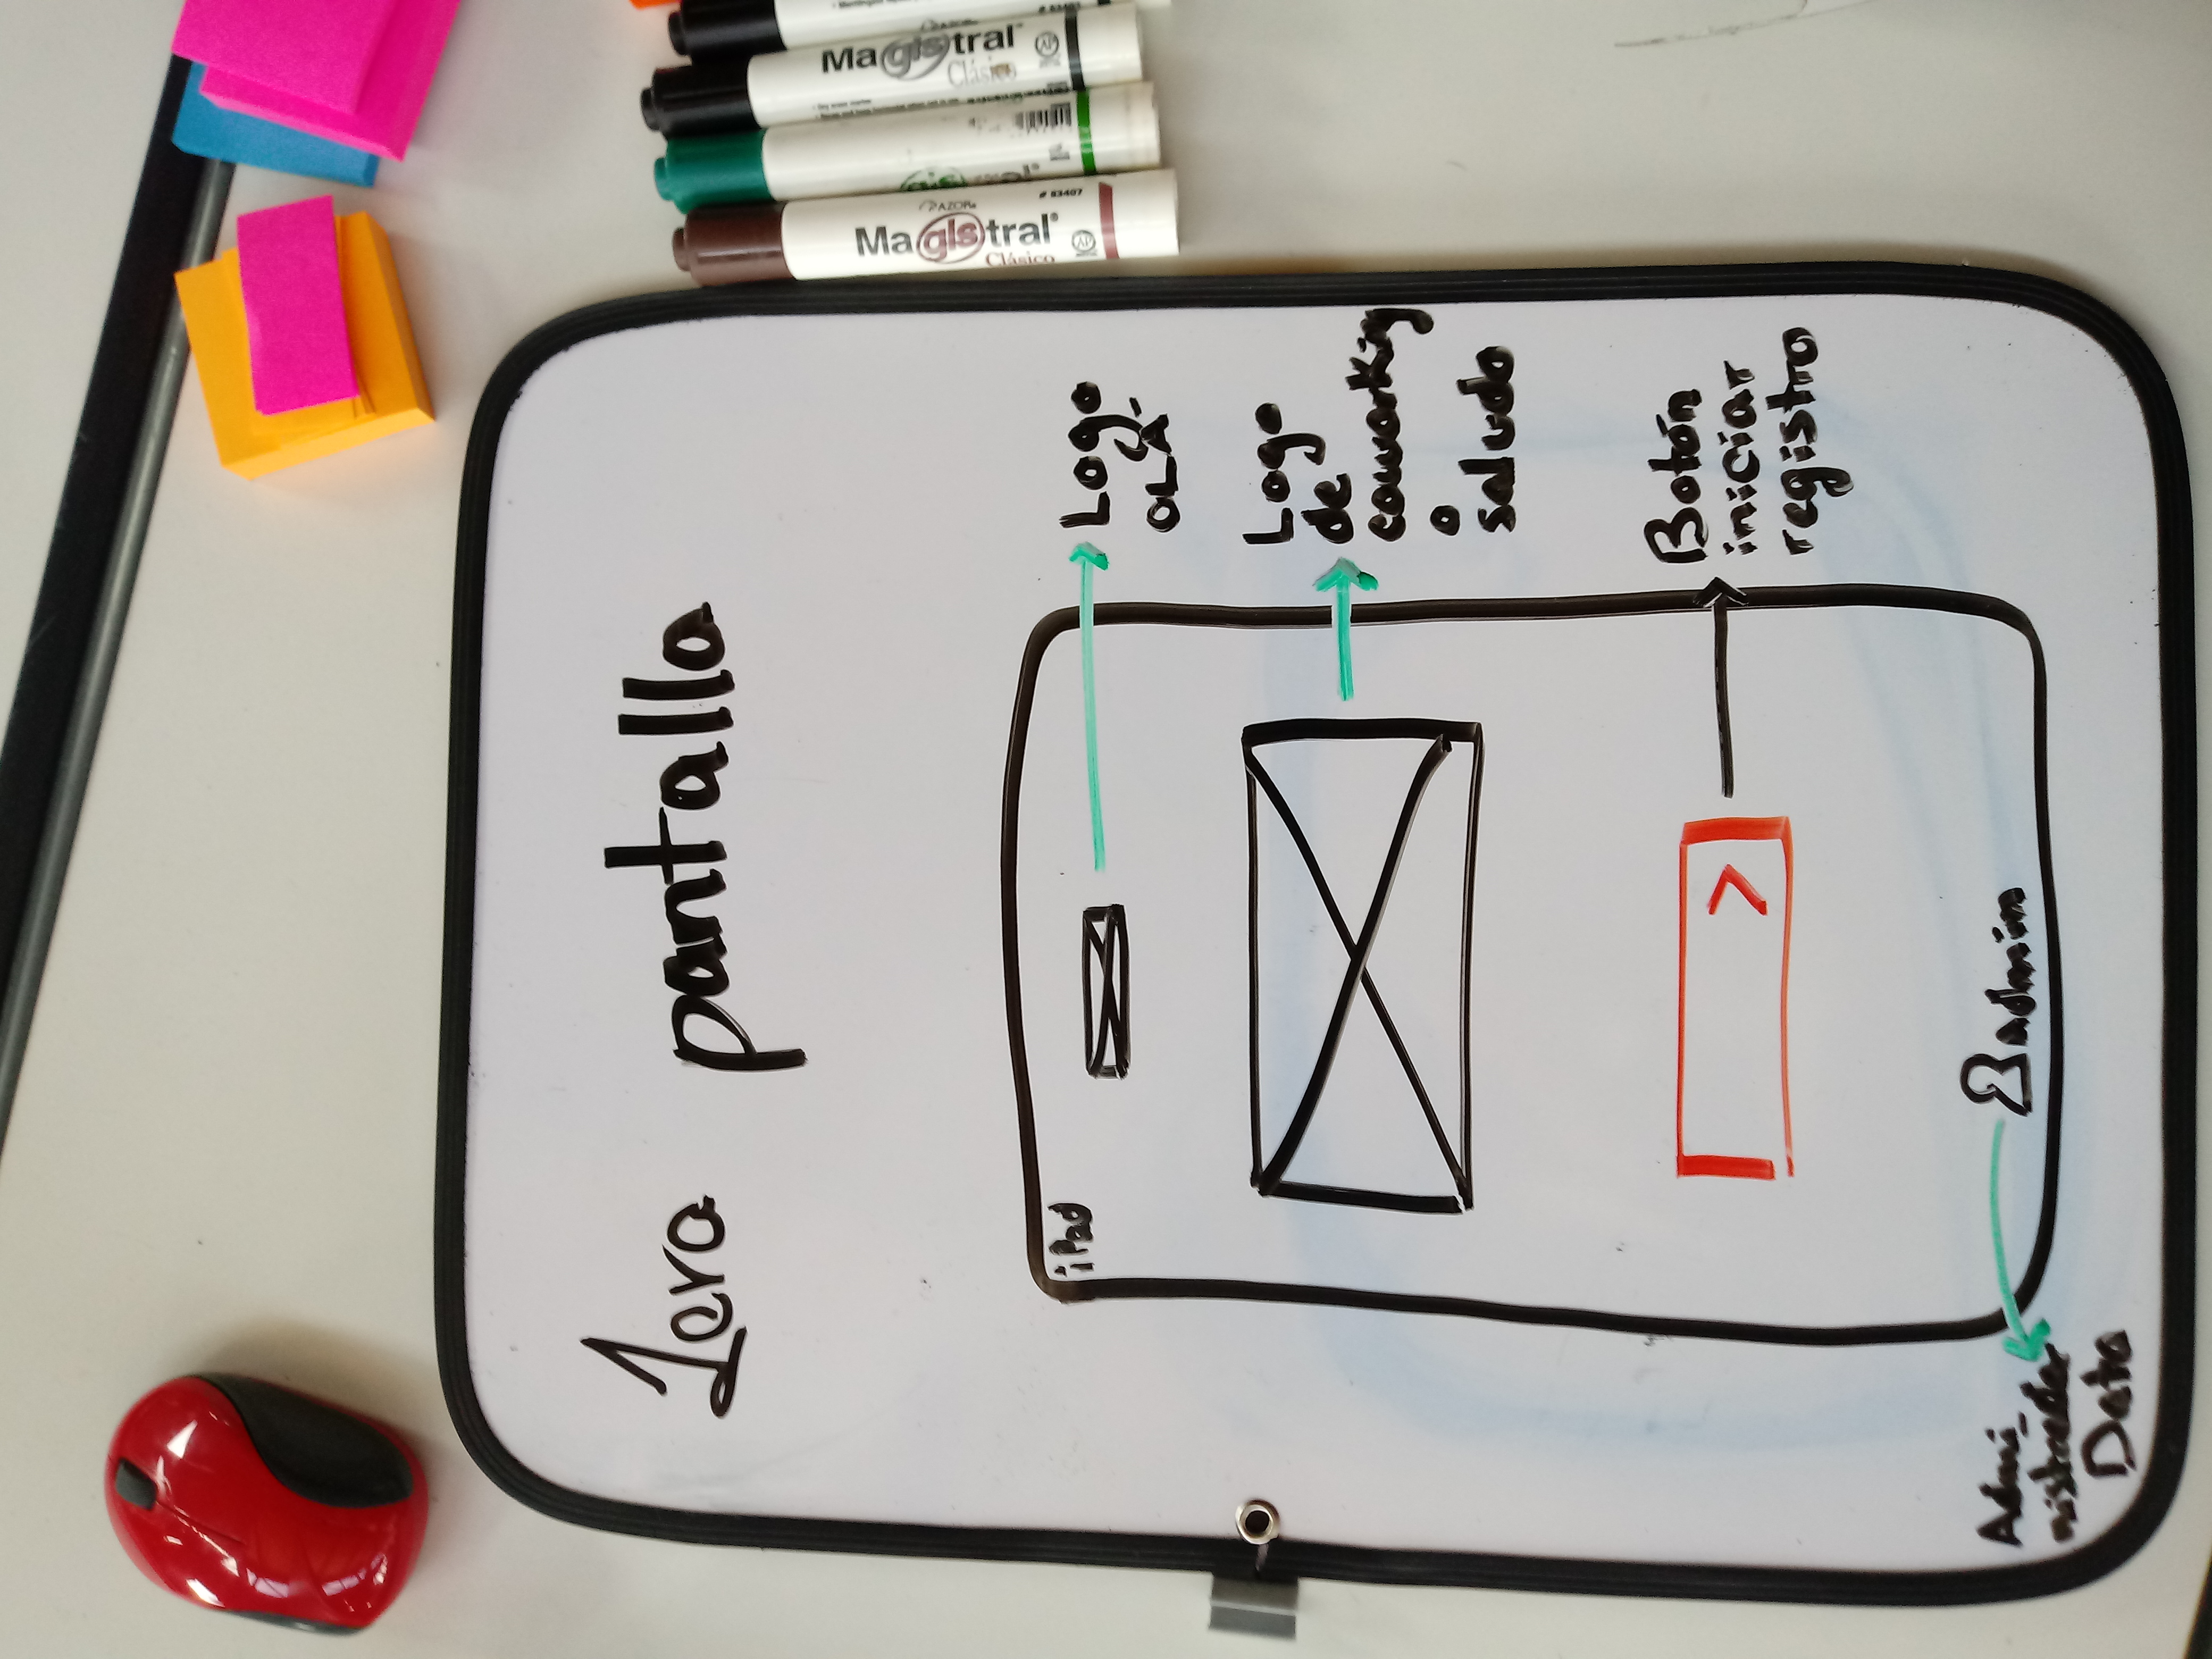 1era pantalla
iPad
Logo
OLÁ
Logo
de
coworking
o
saludo
Botón
iniciar
registro
admin
Admi_
nistrador
Data
Magistral
Clásico
Magistral
Clásico